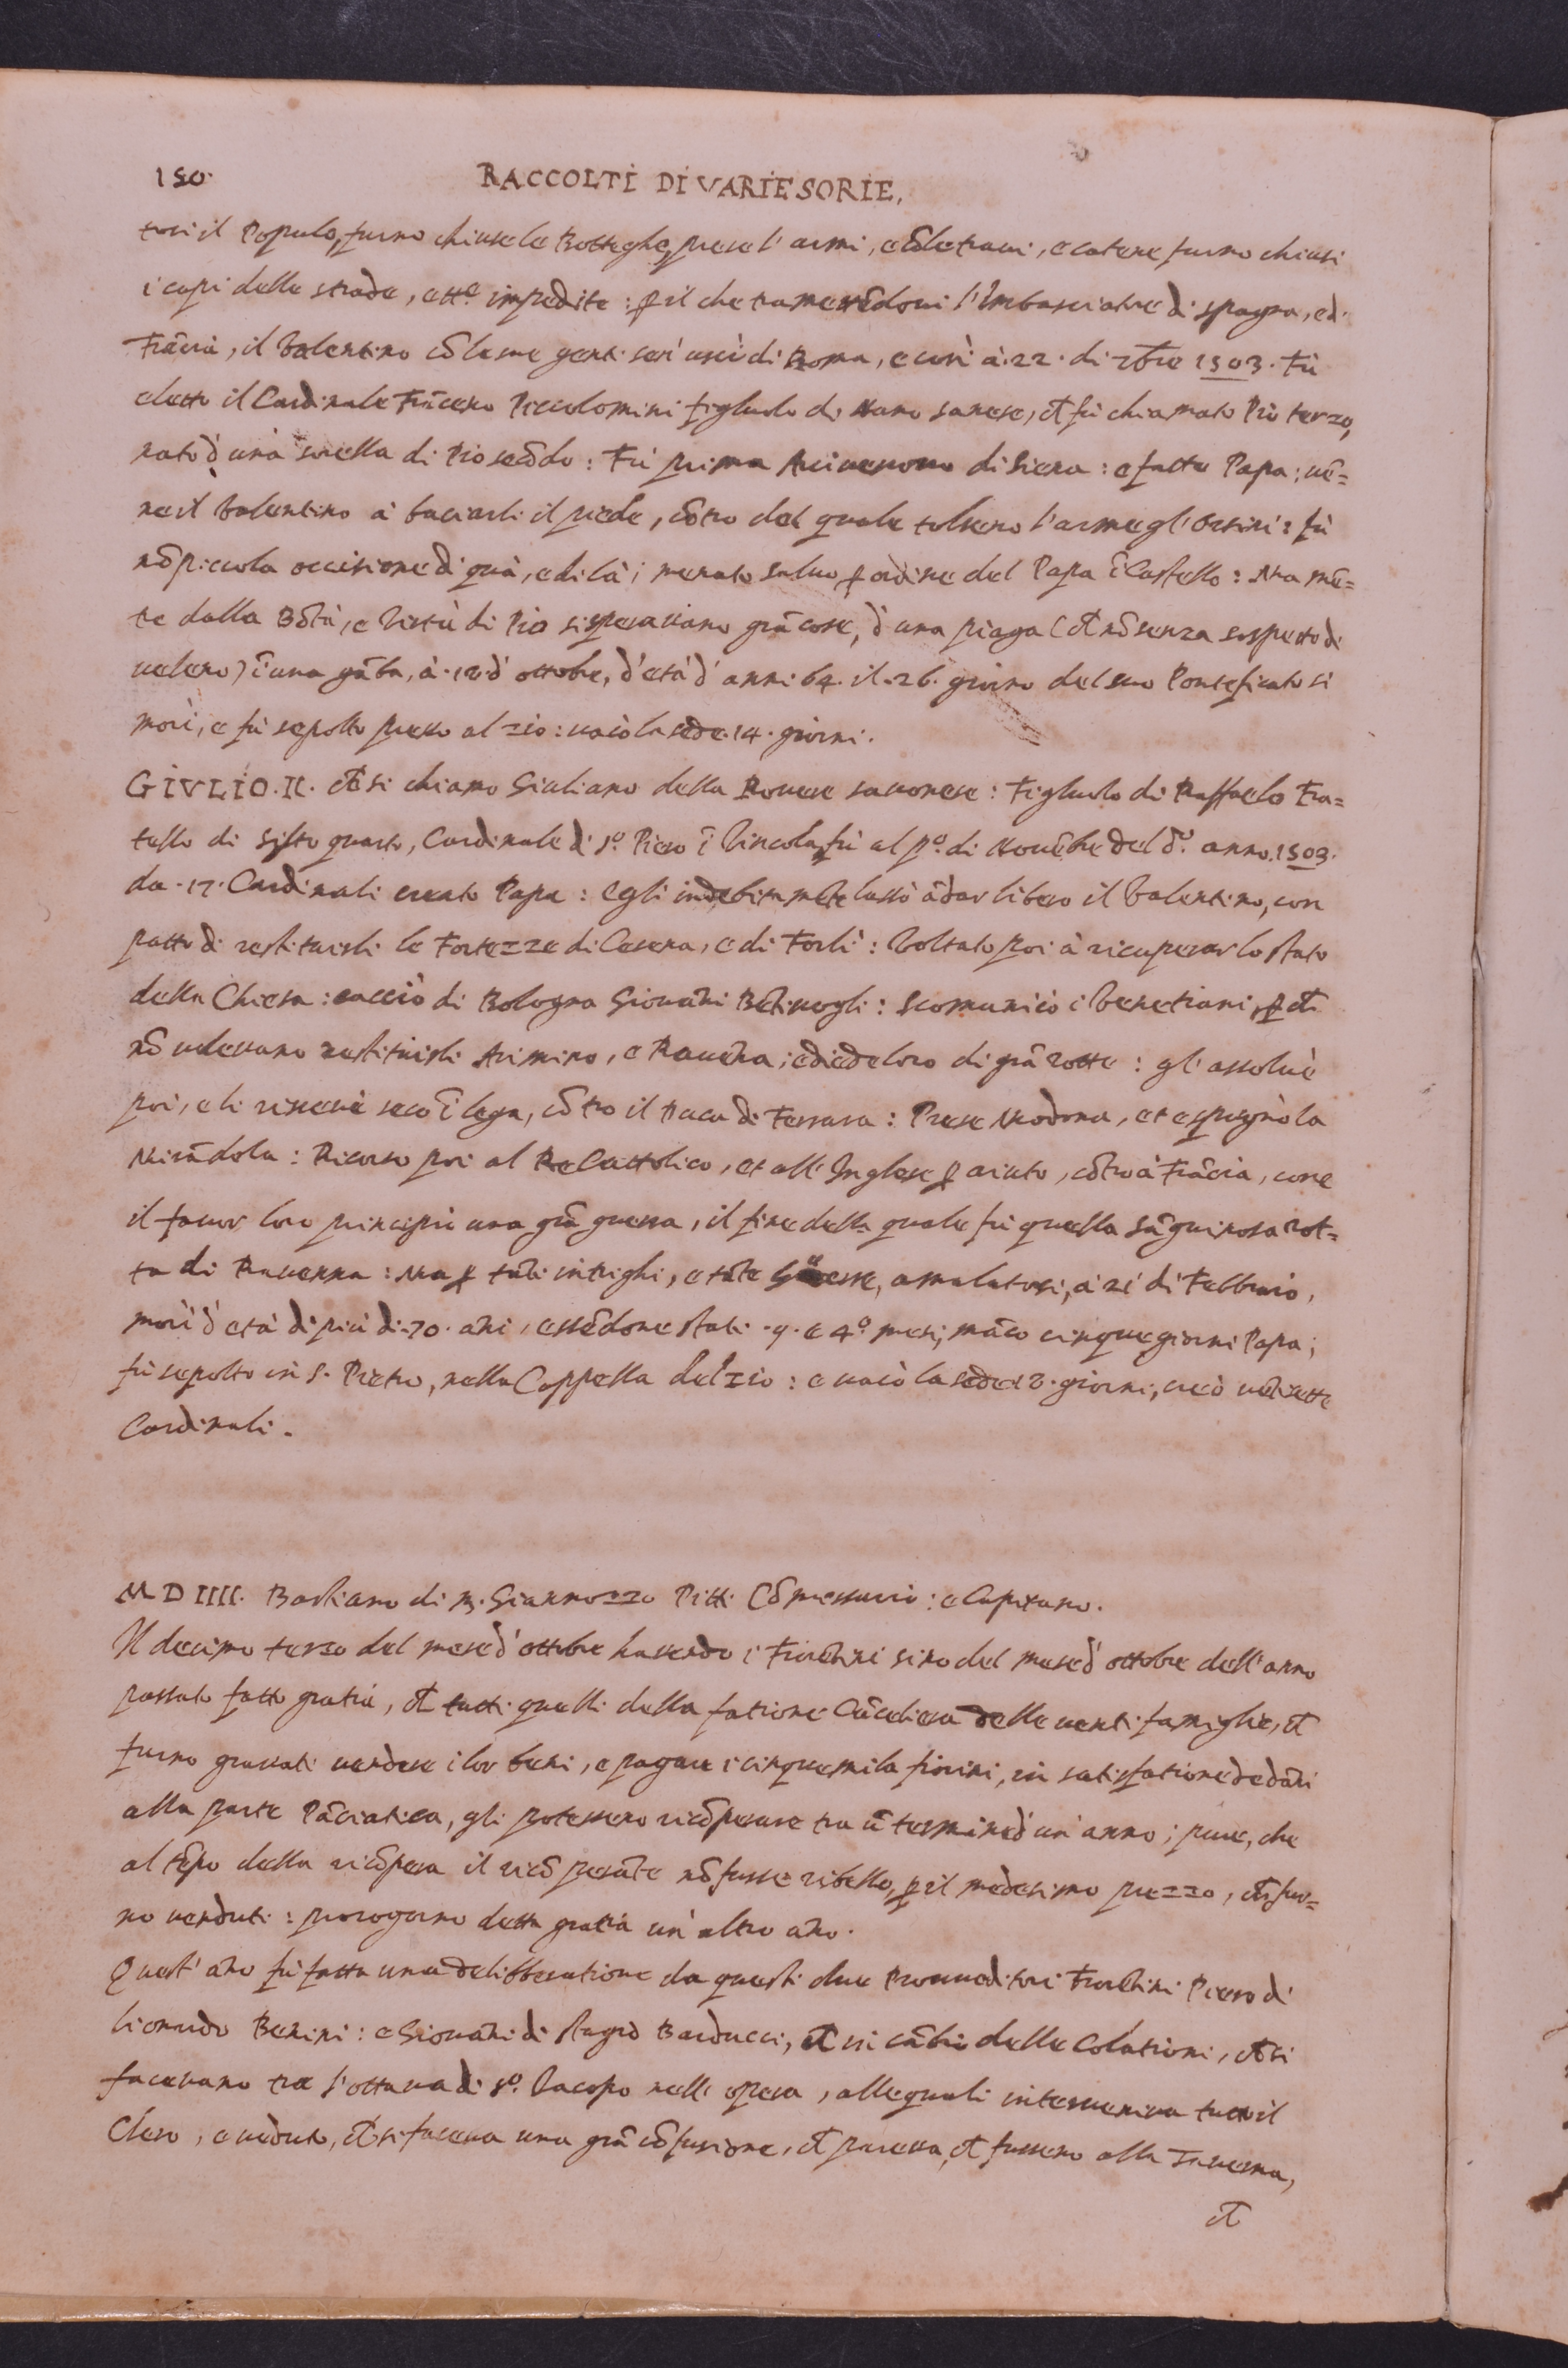 150.
RACCOLTI DI VARIE SORIE,
tosi il Populo, furno chiuse le Botteghe, prese l'armi, e cõ le traui, e catene furno chiusi
i capi delle strade, ett.e impedite: ꝑ il che tramettẽdoui l'Imbasciatore di spagna, ed.
Frãcia, il Valentino cõ le sue genti seri uscì di Roma, e così à .22. di 7bre 1503. Fù
eletto il Cardinale Frãceso Piccolomini figluolo di Nano sanese, ch̃ fù chiamato Pio terzo,
nato d'una sorella di Pio secõdo: Fù prima Arciuescouo di Siena: e fatto Papa; uẽ=
ne il Valentino à baciarli il piede, cõtro del quale tolseno l'arme gl'Orsini: fù
nõ piccola occisione di quà, e di là; menato saluo ꝑ ordine del Papa ĩ Castello: Ma mẽ=
te dalla Bõtà, e Virtù di Pio si sperauano grã cose, d'una piaga (ch̃ nõ senza sospetto di
ueleno) ĩ una gãba, à .18. d'ottobre, d'età d'anni .64. il .26. giorno del suo Ponteficato si
morì, e fù sepolto presso al zio: uacò la sede .14. giorni.
GIVLIO .II. ch̃ si chiamo Giuliano della Rouere sauonese: Figluolo di Raffaelo Fra=
tello di Sisto quarto, Cardinale di s.o Piero ĩ Vincola, fù al p.o di Nouẽbre del d.o anno .1503.
da .17. Cardinali creato Papa: egli indebitamẽte lassò ãdar libero il Valentino, con
patto di restituirli le Fortezze di Cesena, e di Forlì: Voltato poi à ricuperar lo stato
della Chiesa: cacciò di Bologna Giouãni Bẽtiuogli: Scomunicò i Venetiani, ꝑ ch̃
nõ uoleuano restituirli Arimino, e Rauẽna; e diede loro di grã rotte: gl'assoluè
poi, e li riceuè seco ĩ lega, cõtro il Duca di Ferrara: Prese Modona, et espugnò la
Mirãdola: Ricorso poi al Re Cattolico, et all'Inglese ꝑ aiuto, cõtro à Frãcia, con e
il fauor loro principiò una grã guerra, il fine della quale fù quella sãguinosa rot=
ta di Rauenna: Ma ꝑ tãti intrighi, e tãte guerre, amalatosi, à 21 di Febbraio,
morì d'età di più di .70. ãni, essẽdone stati .9. e 4.o mesi, mãco cinque giorni Papa;
fù sepolto in S. Pietro, nella Cappella del zio: e uacò la sede 18. giorni; creò uẽtisette
Cardinali.
MDIIII. Bastiano di M. Giannozzo Pitti Cõmessario: e Capitano.
Il decimo terzo del mese d'ottobre hauendo i Fiorẽtini sino del mese d'ottobre dell'anno
passato fatto gratia, ch̃ tutti quelli della fatione Cãceliera delle uenti famiglie, ch̃
furno grauati uendere i lor beni, e pagare i cinquemila fiorini, in satisfatione de dãni
alla parte Pãciatica, gli potesseno ricõperare tra ũ termine d'un'anno; pure, che
al tẽpo della ricõpera il ricõperãte nõ fusse ribello, ꝑ il medesimo prezzo, ch̃ fur=
no uenduti: prorogorno detta gratia un'altro ãno.
Quest'ãno fù fatta una deliberatione da questi due Proueditori Fiorẽtini Piero di
Lionardo Benini: e Giouãni di Stagio Barducci, ch̃ in cãbio delle Colationi, ch̃ si
faceuano tra l'ottaua di s.o Iacopo nell'opera, alle quali interueniua tutto il
Clero, e uẽduto, ch̃ si faceua una grã cõfusione, ch̃ pareua, ch̃ fusseno alla Tauerna,
ch̃